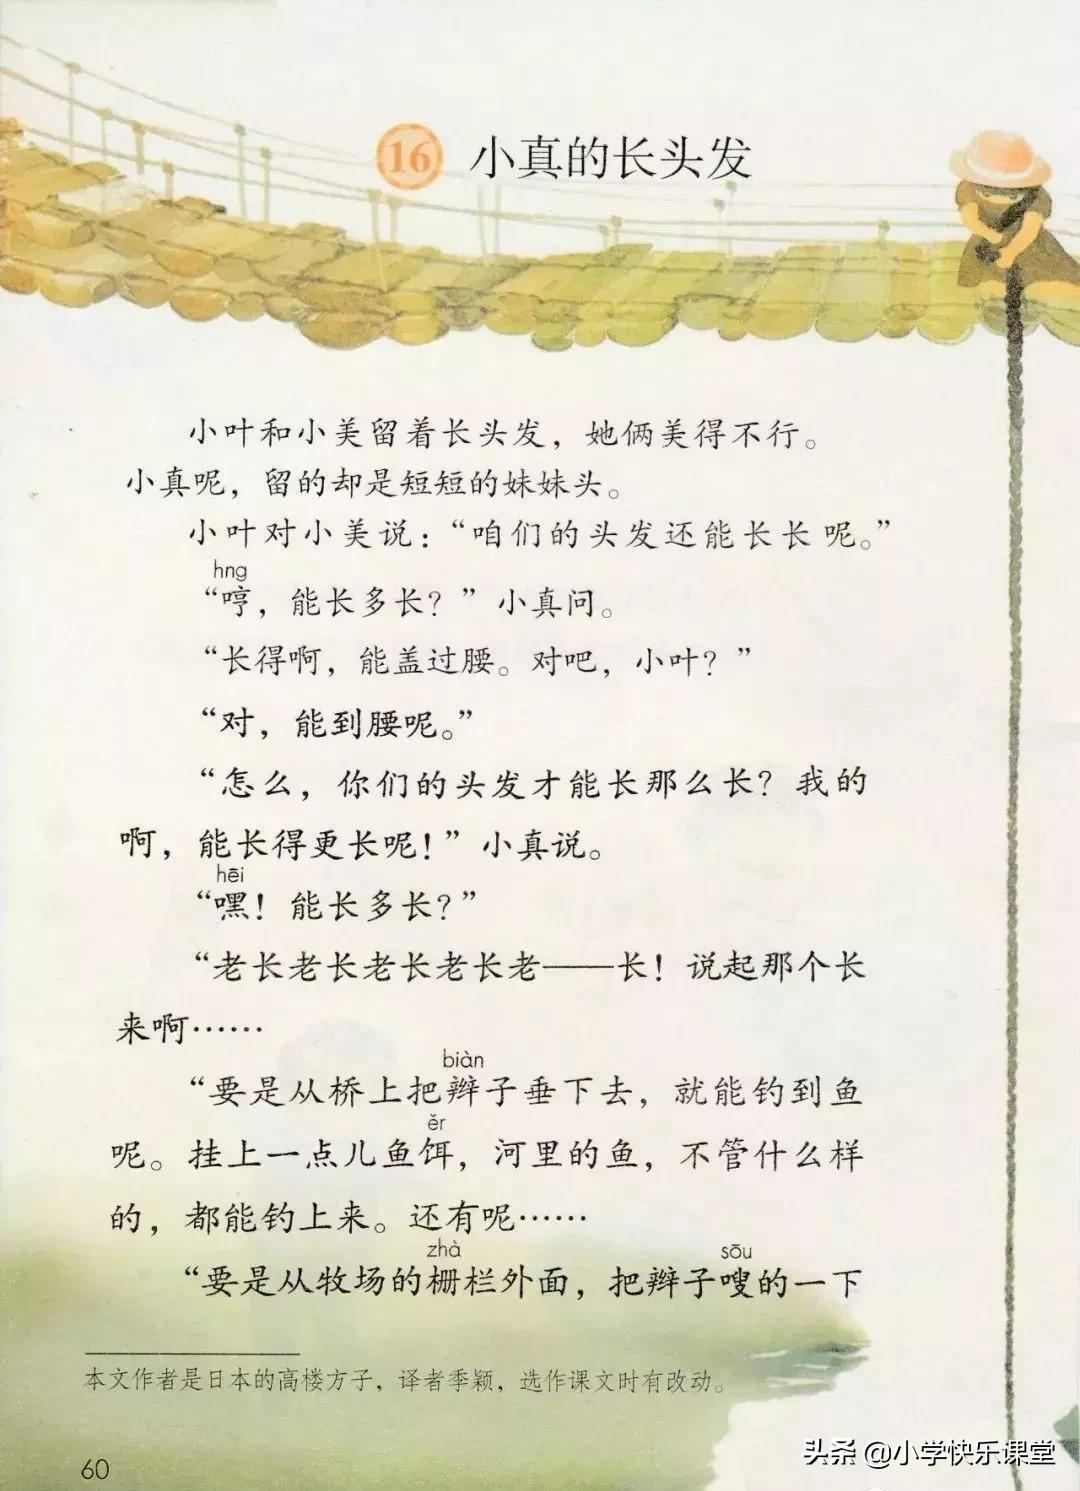 16 小真的长头发
小叶和小美留着长头发，她俩美得不行。
小真呢，留的却是短短的妹妹头。
小叶对小美说：“咱们的头发还能长长呢。”
hng
“哼，能长多长？”小真问。
“长得啊，能盖过腰。对吧，小叶？”
“对，能到腰呢。”
“怎么，你们的头发才能长那么长？我的
啊，能长得更长呢！”小真说。
hēi
“嘿！能长多长？”
“老长老长老长老长老——长！说起那个长
来啊……
biàn
“要是从桥上把辫子垂下去，就能钓到鱼
ěr
呢。挂上一点儿鱼饵，河里的鱼，不管什么样
的，都能钓上来。还有呢……
zhà sōu
“要是从牧场的栅栏外面，把辫子嗖的一下
本文作者是日本的高楼方子，译者季颖，选作课文时有改动。
60
头条 @小学快乐课堂